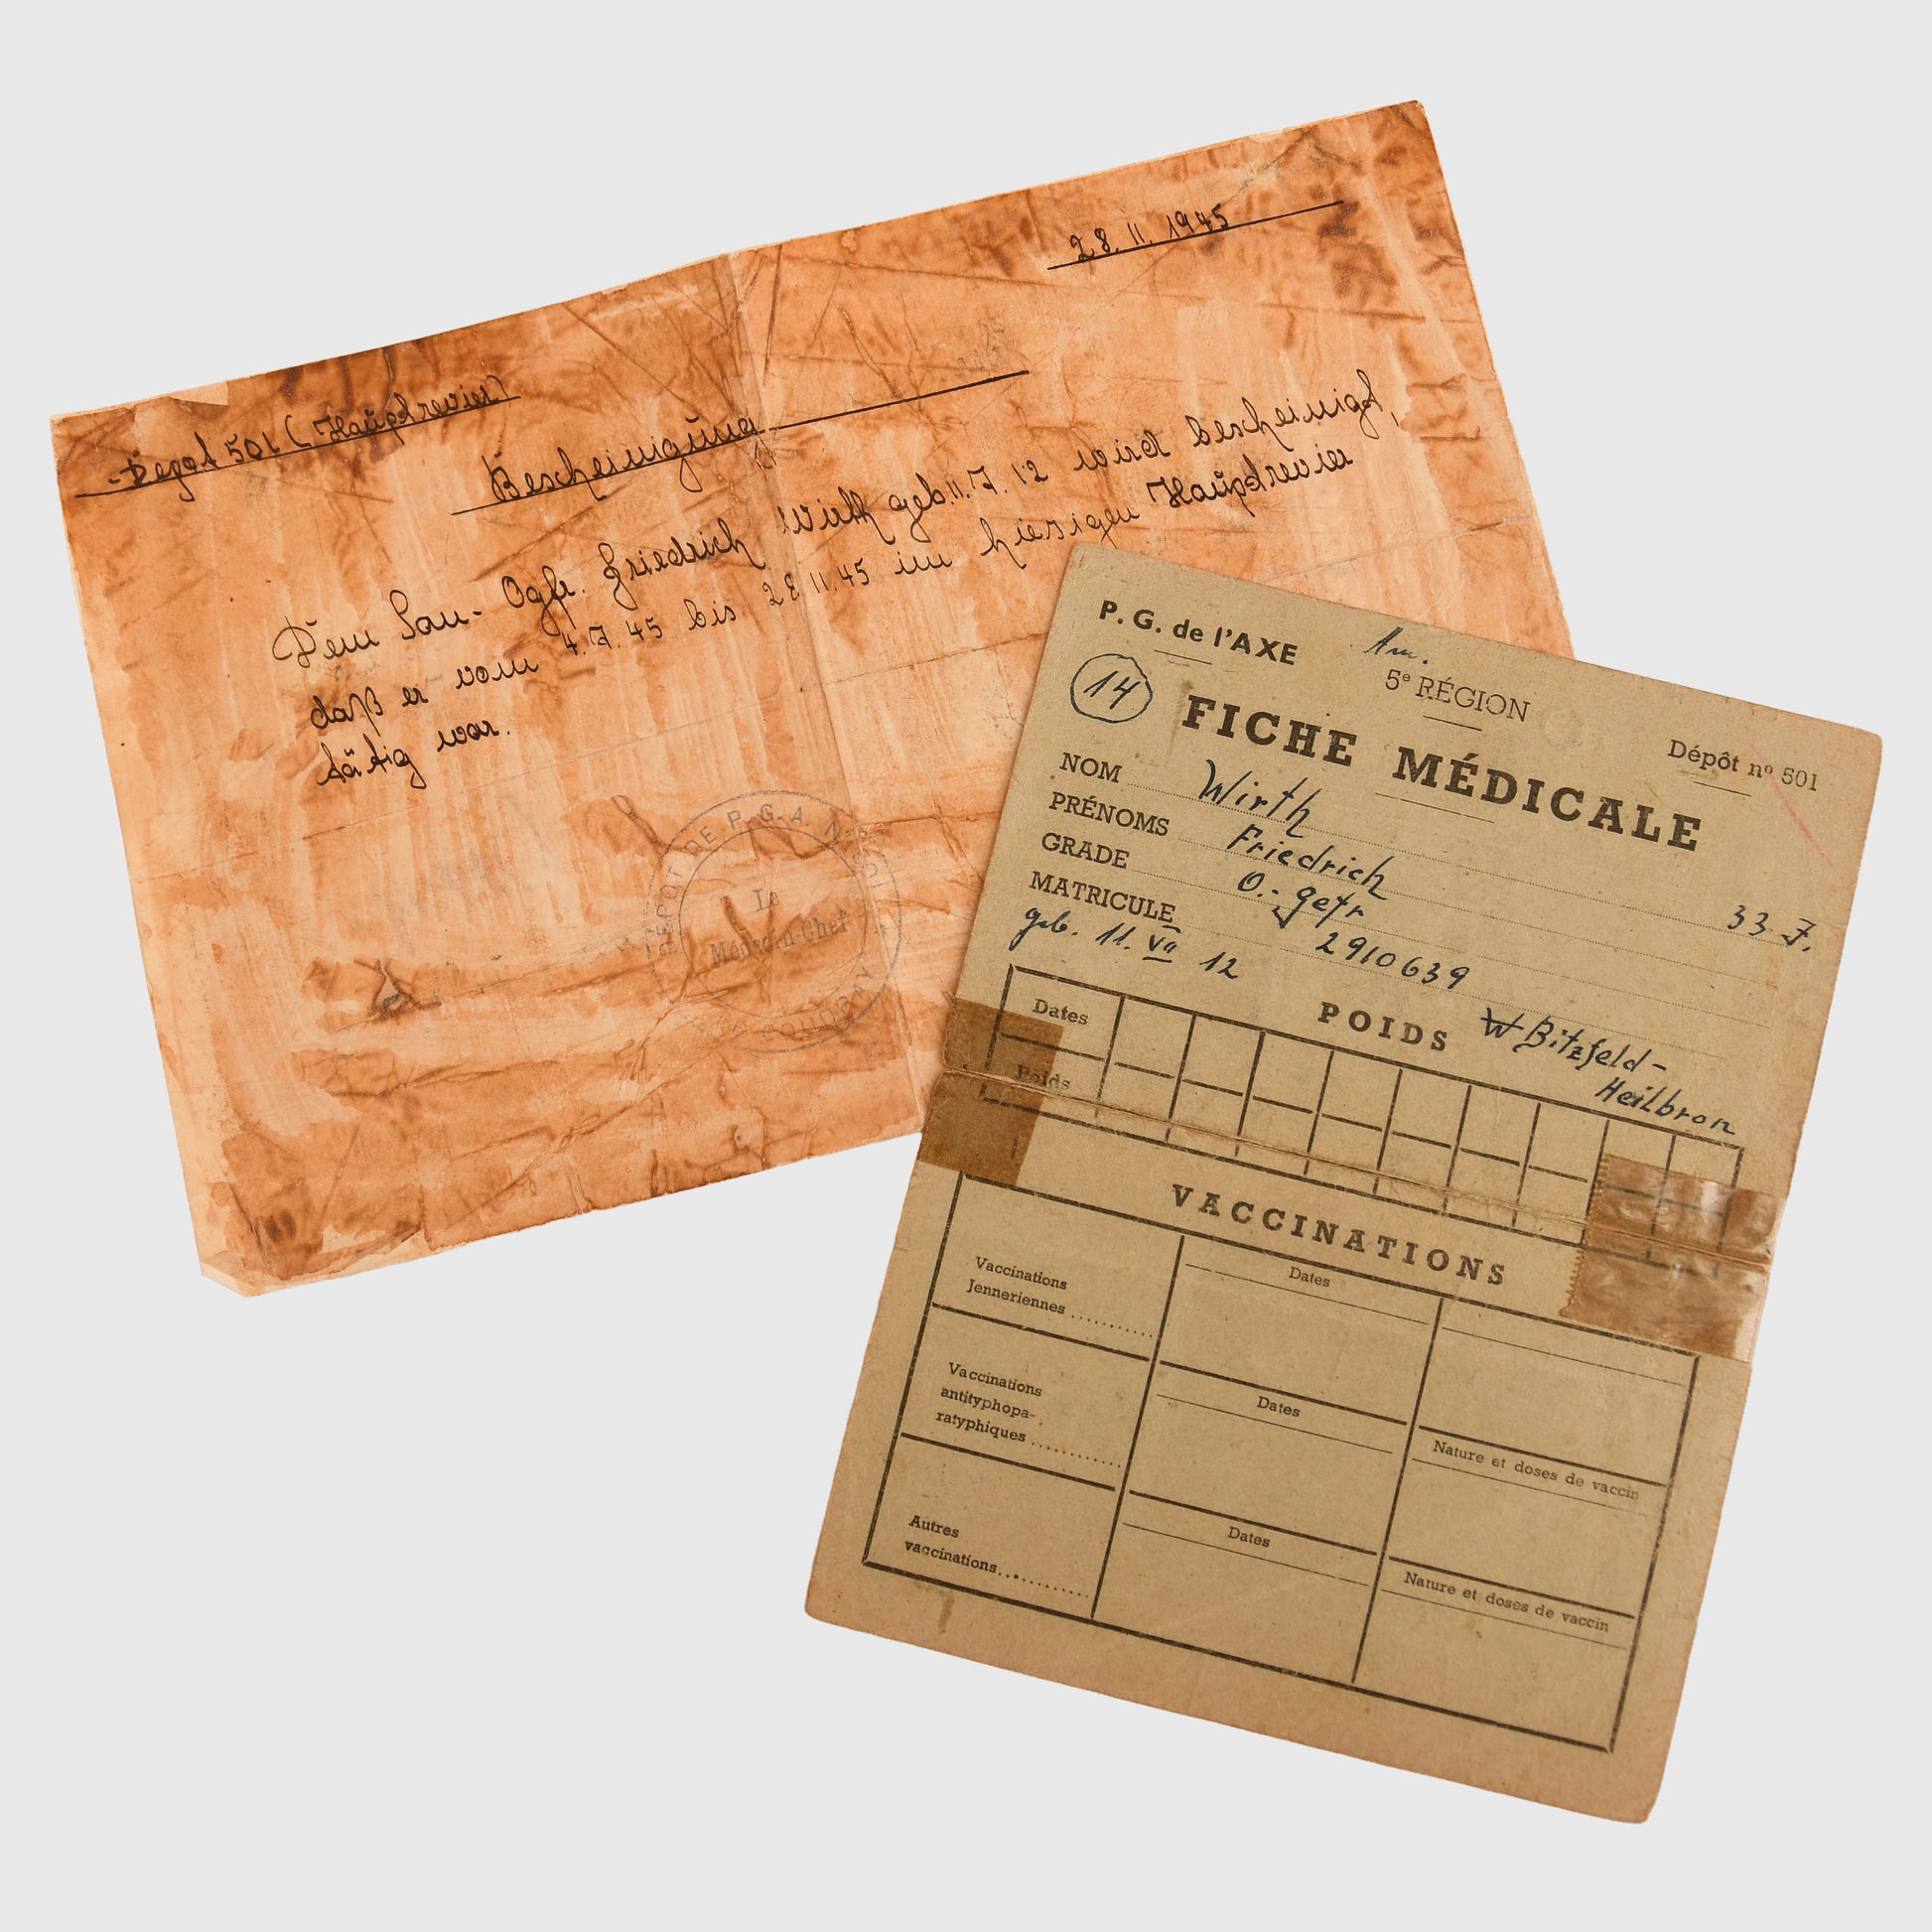 28.11.1945
Depot 501 (Hauptrevier)
Bescheinigung
Dem San-Ogfr. Friedrich Wirth geb. 11.7.12 wird bescheinigt,
daß er vom 4.7.45 bis 28.11.45 im hiesigen Hauptrevier
tätig war.
DEPOT DE P.G.A. N° 501
Le
Médecin-Chef
P. G. de l'AXE
5e RÉGION
Dépôt nº 501
14
FICHE MÉDICALE
NOM Wirth
PRÉNOMS Friedrich
GRADE O.-gefr
33 J.
MATRICULE 2910639
geb. 11. VII 12
W Bitzfeld-
Heilbron
POIDS
Dates
Poids
VACCINATIONS
Vaccinations
Jenneriennes ............
Dates
Vaccinations
antityphopa-
ratyphiques ............
Dates
Nature et doses de vaccin
Autres
vaccinations............
Dates
Nature et doses de vaccin